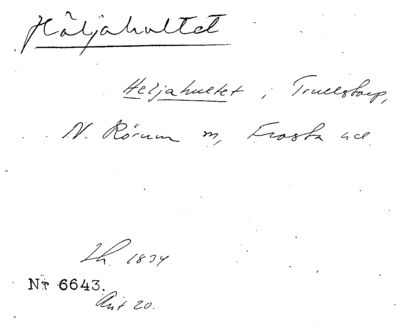 Häljahultet
Heljahultet, Truedstorp,
N. Rörum sn, Frosta hd.
Lh. 1834
Nr 6643.
Akt 20.